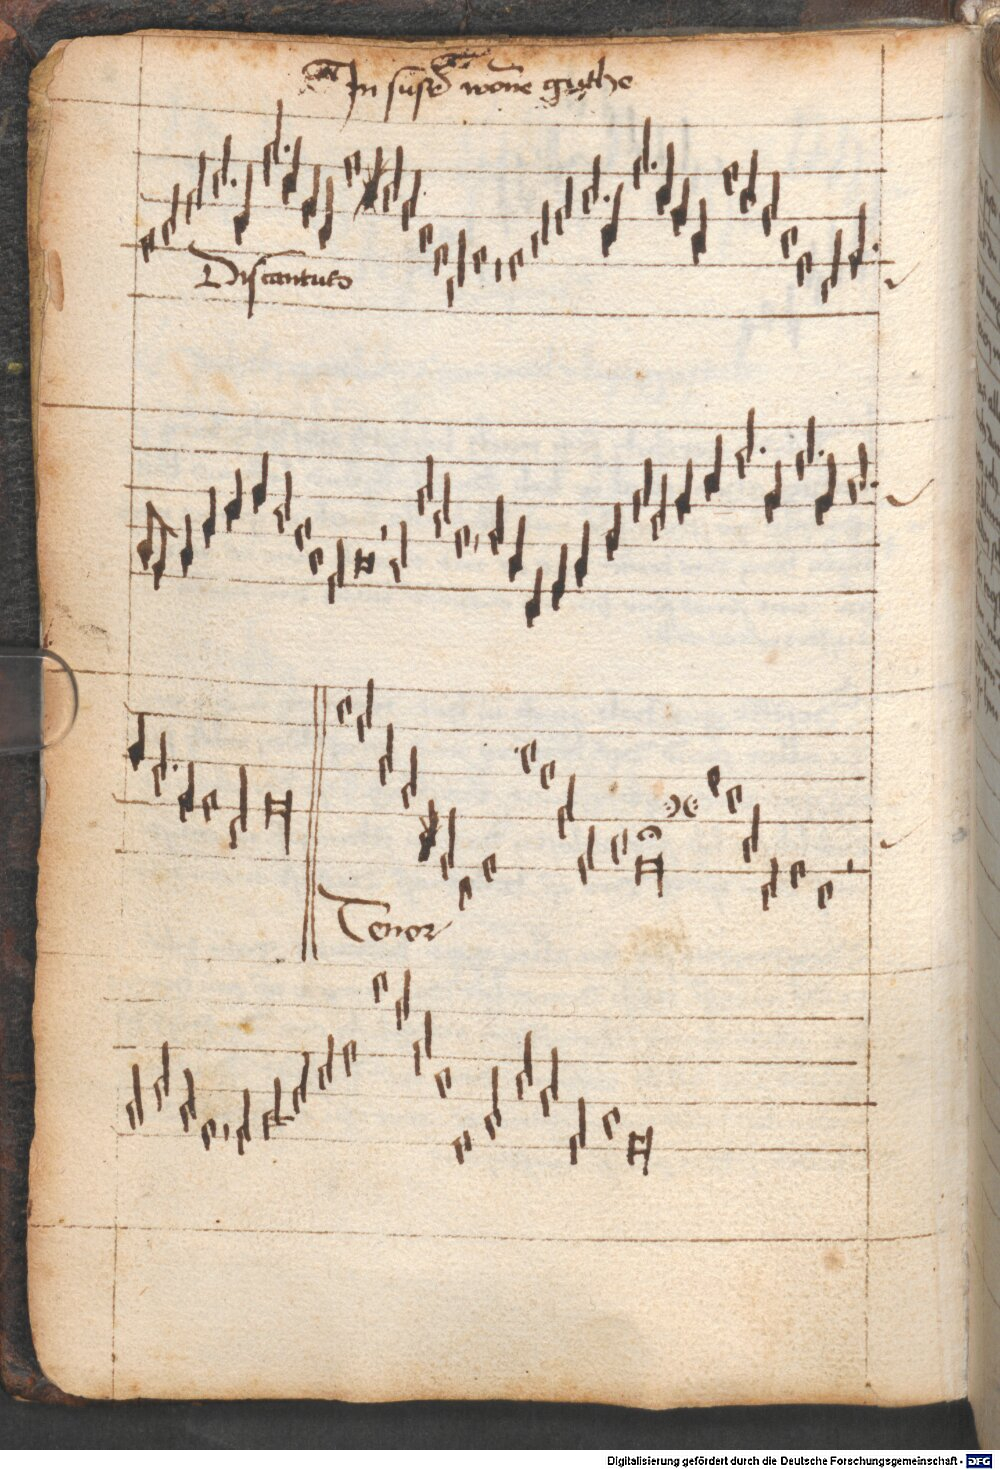 In suſſer wone guthe
Discantus
Tenor
Digitalisierung gefördert durch die Deutsche Forschungsgemeinschaft - DFG